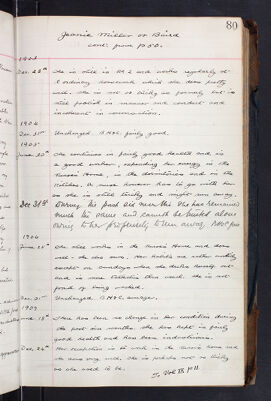 80
Jeannie Miller or Baird
cont. from p 50.
1903
Dec. 28th She is still in H 2 and works regularly at
ordinary housework which she does pretty
well. She is not so thirsty as formerly but is
still foolish in manner and conduct and
incoherent in conversation.
1904
Dec. 31st Unchanged. B.H.&C. fairly good.
1905
June 30th She continues in fairly good health and is
a good worker, expending her energy in the
Nurses Home, in the dormitories and in the
Kitchen. A nurse however has to go with her
as she is still thirsty and might run away.
Dec 31st During the past six months she has remained
much the same and cannot be trusted alone
owing to her propensity to run away.
1906
June 28th She still works in the Nurses Home and does
well: she does sew. Her habits are rather untidy
except on Sundays when she
and is more tidy. She is
fond of being
Dec. 31st Unchanged B.H.&C. average.
1907
June 18th There has been no change in her condition during
the past six months. She has kept in fairly
good health and has been industrious.
Dec. 26th Her occupation is to work in the Nurses home and
she does very well. She is not so thirsty
as she used to be.
To Vol IX p 11